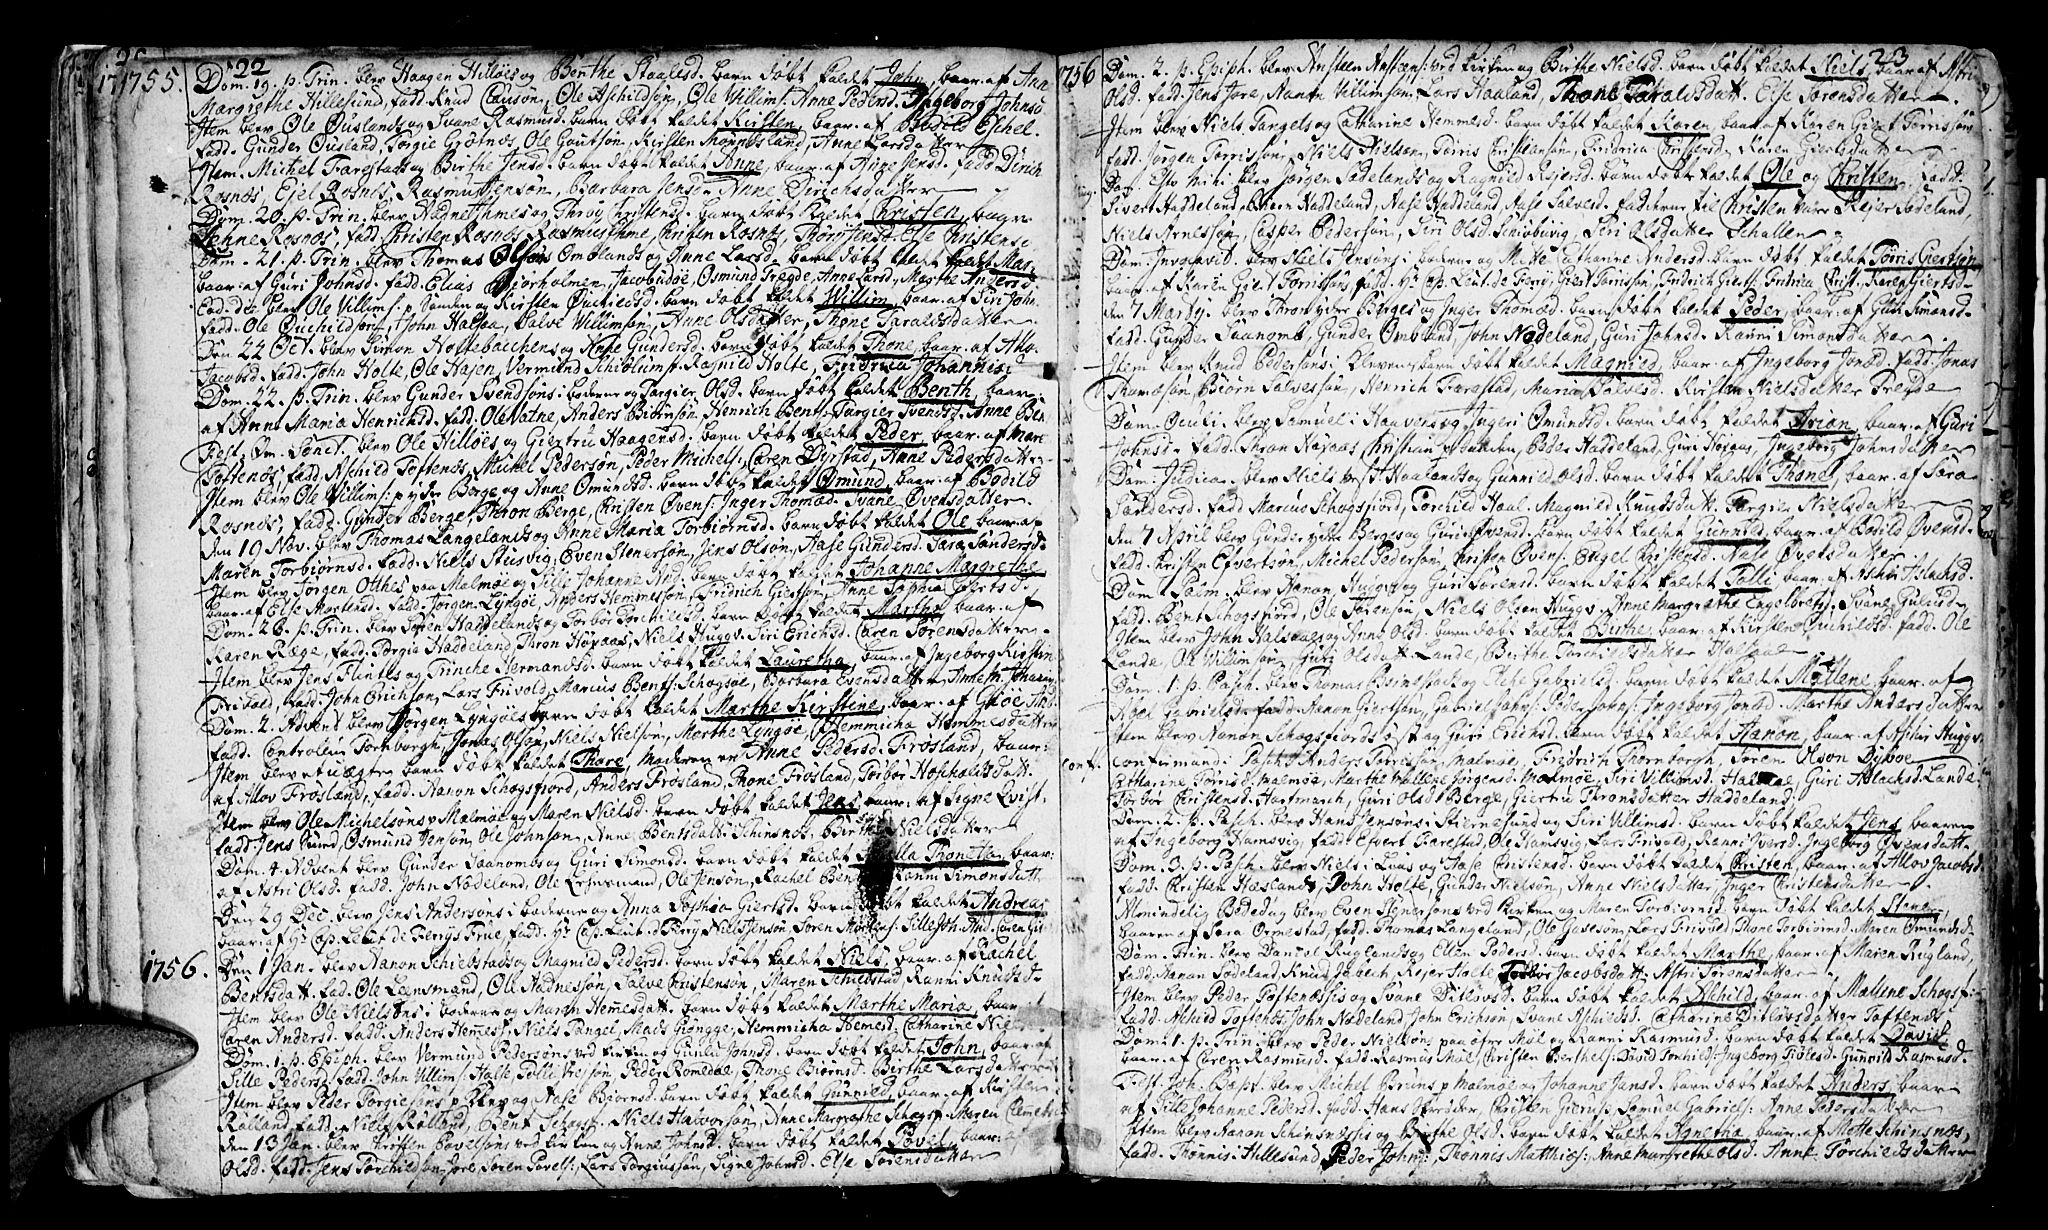 22
1755. Dom. 19. p. Trin. blev Haagen Hilløes og Berthe Staalesd. barn døbt kaldet John, baar. af Ann
Margrethe Hillesund, fadd. Knud Clausøn, Ole Aschildsøn, Ole Villims. Anne Pedersd. Ingeborg Johnsd.
Item blev Ole Øuslands og Svane Rasmusd. barn døbt kaldet Kirsten, baar. af Bodild Eschel.
fadd. Gunder Øusland, Torgie Grøtnes, Ole Gautsøn, Kirsten Mønnesland, Anne Larsdatter
Item. Michel Farestads og Birthe Jensd. barn døbt kaldet Anne, baar. af Inge Jensd. fadd. Dirich
Rosnes, Ejel Rosnes, Rasmus Jensøn, Barbara Jensd. Anne Dirichsdatter
Dom. 20. p. Trin. blev Aadne Ihmes og Throy Christensd. barn døbt kaldet Christen, baar.
Lehne Rosnes, fadd. Christen Rosnes Rasmus Ihme, Christen Rosnes, Thore Jensd. Else Christens.
Dom. 21. p. Trin. blev Thomas Olsøns Omdlands og Anne Larsd. barn døbt kaldet Mar
baar. af Guri Johnsd. fadd. Elias Bjorholmen, Jacob Udøe, Osmund Tregde, Anne Larsd. Marthe Andersd.
Ead. die blev Ole Villims. p. Sanden og Kirsten Ouchildsd. barn døbt kaldet Willim, baar. af Siri John.
fadd. Ole Ouchildsøn, John Halsaa, Salve Villimsøn, Anne Olsdatter, Thone Taraldsdatter
Den 22 Oct. blev Simon Holtebacchens og Anne Gundersd. barn døbt kaldet Thone, baar. af Tho.
Jacobsd. fadd. John Holte, Ole Aasen, Vermund Schiølum, Ragnild Holte, Fridrica Johannes.
Dom. 22. p. Trin. blev Gunder Svendsøns i baderne og Targier Olsd. barn døbt kaldet Benth, baar.
af Anne Maria Henrichsd. fadd. Ole Vatne, Anders Biørnsøn, Henrich Bents. Targier Svendsd. Anne Ber
Fest. Om. Sanct. blev Ole Hilløes og Giertru Haagensd. barn døbt kaldet Peder, baar. af Mari
Toftenes, fadd. Aschild Toftenes, Michel Pedersøn, Peder Michels. Caren Dyrstad, Anne Pedersdatter
Item blev Ole Villims. p. ydre Berge og Anne Omundsd. barn døbt kaldet Omund, baar. af Bodild
Rosnes, fadd. Gunder Berge, Thron Berge, Christen Øvens. Inger Thomæd. Svane Øvensdatter
den 19 Nov. blev Thomas Langelands og Anne Maria Torbiørnsd. barn døbt kaldet Ole baar. af
Maren Torbiørnsd. fadd. Niels Stusvig, Even Stenersøn, Jens Olsøn, Aase Gundersd. Sara Sandersd.
Item blev Jørgen Otthes paa Malmøe og Sille Johanne And. barn døbt kaldet Johanne Margrethe
baar. af Else Mortensd. fadd. Jørgen Lyngøe, Anders Hemmesøn, Fridrich Giertsøn, Anne Sophia Giertsd.
Dom. 26. p. Trin. blev Søren Haddelands og Torbor Torchildsd. barn døbt kaldet Marthe baar. af
Karen Ræge, fadd. Torgie Haddeland, Thron Høysaas, Niels Huggs. Siri Erichsd. Caren Sørensdatter
Item blev Jens Flintes og Trinche Hermandsd. barn døbt kaldet Lauretha, baar. af Ingeborg Kirstin
Fribold, fadd. John Erichsøn, Lars Frivold, Marcus Bents. Schogsøe, Barbara Evensdatter, Anne M. Johann
Dom. 2. Advent blev Jørgen Lyngøes barn døbt kaldet Marthe Kirstine, baar. af
fadd. Controleur Tornborgh, Jonas Olsøn, Niels Nielsøn, Marthe Lyngøe, Hemmicha Hemmesdatter
Item blev et uægte barn døbt kaldet Thore, moderen er Anne Pedersd. Frøsland, baar.
af Allov Frøsland, fadd. Aanon Schogsfiord, Anders Frøsland, Thone Frøsland, Torbor Hoschaldsdatt.
Item blev Ole Michelsøns p. Malmøe og Maren Nielsd. barn døbt kaldet Jens, baar. af Signe Qvist.
fadd. Jens Suund, Osmund Jensøn, Ole Johnsøn, Anne Bentsdatt. Schinsnes, Birthe Nielsdatter
Dom. 4. Advent blev Gunder Saanoms og Guri Simonsd. barn døbt kaldet Thonetta, baar.
af Astri Olsd. fadd. John Nodeland, Ole Lehnesmand, Ole Jensøn, Rachel Ben Ranni Simonsdatt.
Den 29 Dec. blev Jens Andersøns i baderne og Anna Sophia Giertsd. barn døbt kaldet Andreas,
baar. af Hr. Cap. Leut de Ferrys Frue, fadd. Hr. Cap. Leut. d Ferry Niels Jensøn, Søren Mortens. Sille Joh. And. Caren Gi
1756. Den 1 Jan. blev Aanon Schiebstads og Magnild Pedersd. barn døbt kaldet Niels, baar. af Rachel
Bentsdatt. fad. Ole Leensmand, Ole Aadnessøn, Salve Christensøn, Maren Schiebstad, Ranni Knudsd.
Item blev Ole Nielsøns i baderne og Maren Hemesdatt. barn døbt kaldet Marthe Maria, baar.
Caren Andersd. fadd. Anders Hemes. Niels Tangel, Mads Giøngge, Hemmicha Hemesd. Catharine Niels
Dom. 1. p. Epiph. blev Vermund Pedersøns ved kirken og Gunlu Johnsd. barn døbt kaldet John, baar. af
Sille Pedersd. fadd. John Villims. Halse, Tolle Jensøn, Peder Romedal, Thone Biørnsd. Berthe Larsdatter
Item blev Peder Torgiesens p. Kleven og Aase Biørnsd. barn døbt kaldet Gunvild, baar. af Kirsten
Rølland, fadd. Niels Rølland, Bent Schogsf. Niels Halvorsøn, Anne Margrethe Schogsf. Maren Clemets
den 13 Jan. blev Christen Povelsøns ved kirken og Anne Johnsd. barn døbt kaldet Povel, baar.
Olsd. fadd. Jens Torchildsøn Jore, Søren Povels. Lars Torgiussøn, Signe Johnsd. Else Sørensdatter
23
1756 Dom. 2. p. Epiph. blev Ansteen Ansteens. ved kirken og Birthe Nielsd. barn døbt kaldet Niels, baar. af Astri
Olsd. fadd. Jens Jore, Aanon Villimsøn, Lars Haaland, Thone Taraldsdatt. Else Sørensdatter
Item blev Niels Tangels og Catharine Hemmesd. barn døbt kaldet Karen, baar. af Karen Giert Torrissøn
fadd. Jørgen Torrissøn, Niels Nielsøn, Torris Christensøn, Fridrica Christensd. Karen Giertsdatter
Dom. Esto Mihi blev Jørgen Sødelands og Ragnild Rejersd. børn døbt kaldet Ole og Christen, fadd.
Sivert Haddeland, Osteen Haddeland, Aase Haddeland, Aase Salvesd. fadderne til Christen vare Rejer Sødeland,
Niels Arnessøn, Casper Pedersøn, Siri Olsd. Schiøbuvig, Siri Olsdatter Schallen
Dom. Invocavid. blev Niels Jensøns i baderne og Mette Catharine Andersd. barn døbt kaldet Torris Giertsøn
baar. af Karen Giert Torrissøns, fadd. Hr. Cap. Leut. de Ferry, Giert Torrissøn, Fridrich Gierts. Fridrica Christ. Karen Gierts d.
den 7 Martij. blev Thron ydre Berges og Inger Thomæd. barn døbt kaldet Peder, baar. af Guri Simonsd.
fadd. Gunder Saanom, Gunder Omland, John Nodeland, Guri Johnsd. Ranni Simonsdatter
Item blev Knud Pedersøns i Kleven barn døbt kaldet Magnild baar. af Ingeborg Jonæd. fadd. Jonas
Thomæsøn, Biørn Salvesøn, Henrich Farestad, Maria Salvesd. Kirsten Nielsdatter Tregde
Dom. Oculi. blev Samuel i Haavens og Ingeri Omundsd. barn døbt kaldet Arian, baar. af Guri
Johnsd. fadd. Thron Høsaas, Christian p. Sanden, Peder Haddeland, Guri Høsaas, Ingeborg Johnsdatter
Dom. Judica. blev Niels ved S. Haalands og Gunnild Olsd. barn døbt kaldet Thone, baar. af Sara
Sandersd. fadd. Marcus Schogsfiord, Torchild Haal. Magnild Knudsdatt. Targier Nielsdatter
den 7 April blev Gunder ydre Berges og Guri Evensd. barn døbt kaldet Gunvild, baar. af Bodild Øvensd.
fadd. Kristen Efvertsøn, Michel Pedersøn, Christen Øvens. Engel Christensd. Aase Øvelsdatter
Dom. Palm. blev Aanon Huggs og Guri Sørensd. barn døbt kaldet Tolli baar. af Aschier Aslachsd.
fadd. Bent Schogsfiord, Ole Sørensøn, Niels Olsen Huggs, Anne Margrethe Engelbrets, Svane Gulusd.
Item blev John Halsaas og Anne Olsd. barn døbt kaldet Birthe, baar. af Kirsten Ouchildsd. fadd. Ole
Lande, Ole Villimsøn, Guri Olsdatt. Lande, Berthe Torchildsdatter Halsaa
Dom. 1. p. Pasch. blev Thomas Bsinestads og Elche Gabrielsd. barn døbt kaldet Mallene, baar. af
Abel Gabrielsd. fadd. Aanon Giertsøn, Gabriel Johns. Peder Johns. Ingeborg Jonæd. Marthe Andersdatter
Item blev Aanon Schogsfiords øst. og Guri Erichsd. barn døbt kaldet Aanon, baar. af Aschier Huggs
conf. confirmand. Pasch. Anders Torrissøn, Malmøe, Friderich Thornborgh, Søren Olsøn Dyboe
Catharine Torrisd. Malmøe, Marthe Mallene Jørgensd. Malmøe, Siri Villumsd. Halsaae, Guri Aslachsd. Lande
Torbor Christensd. Hartmarch, Guri Olsd. Berge, Giertru Thronsdatter Haddeland
Dom. 2. p. Pasch. blev Hans Jensøns Stiernesund og Siri Villimsd. barn døbt kaldet Jens, baaren
af Ingeborg Hamsvig, fadd. Efvert Farestad, Ole Hamsvig, Lars Frivold, Ranni Sversd. Ingeborg Øvensdatt.
Dom. 3. p. Pasch. blev Niels i Laas og Aase Christensd. barn døbt kaldet Christen, baar. af Allov Jacobsd.
fadd. Christen Haasland, John Holte, Gunder Nielsøn, Anne Nielsdatter, Inger Christensdatter
Almindelig Bededag blev Even Stenersøns ved kirken og Maren Torbiørnsd. barn døbt kaldet Stener,
baaren af Sara Ormestad, fadd. Thomas Langeland, Ole Gaasesøn, Lars Frivold, Thone Torbiørnsd. Maren Omundsd.
Dom. Trin. blev Daniel Røglands og Ellen Pedersd. barn døbt kaldet Marthe, baar. af Maren Rugland,
fadd. Aanon Sødeland, Knud Jabech, Rejer Holte, Torbor Jacobsdatt. Astri Sørensdatter
Item blev Peder Toftenæssis og Svane Ditlevsd. barn døbt kaldet Aschild, baar. af Mallene Schogsf.
fadd. Aschild Toftenes, John Nodeland, John Erichsøn, Svane Aschildsd. Catharine Ditlevsdatter Toftenes
Dom. 1. p. Trin. blev Peder Nielsøns paa øfre Møl og Ranni Rasmusd. barn døbt kaldet David,
baar. af Caren Rasmusd. fadd. Rasmus Møl, Christen Berthels. David Torchilds. Ingeborg Tiølesd. Gunvild Rasmusd.
Fest. Joh. Bapt. blev Michel Bruns p. Malmøe og Johanne Jansd. barn døbt kaldet Anders, baar
af Sille Johanne Pedersd. fadd. Hans Schrøder, Christen Gierus, Samuel Gabriels. Anne Pedersdatter
Item blev Aanon Schinsnæssis og Berthe Olsd. barn døbt kaldet Agnetha, baar. af Mette Schinsnæs,
fadd. Thønnis Hillesund, Peder Johns. Thønnis Matthies. Anne Margrethe Olsd. Anne Torchildsdatter